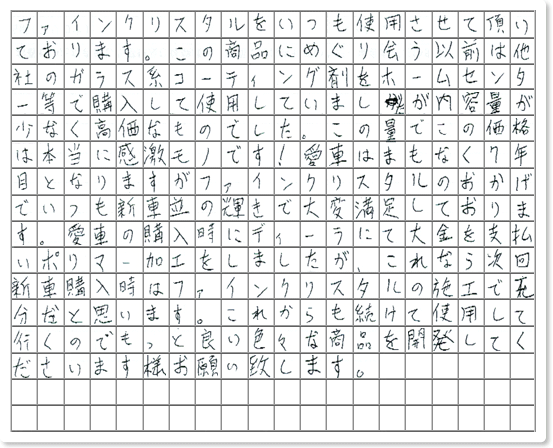 ファインクリスタルをいつも使用させて頂い
ております。この商品にめぐり会う以前は他
社のガラス系コーティング剤をホームセンタ
ー等で購入して使用していましたが内容量が
少なく高価なものでした。この量でこの価格
は本当に感激モノです！愛車はまもなく7年
目となりますがファインクリスタルのおかげ
でいつも新車並の輝きで大変満足しておりま
す。愛車の購入時にディーラにて大金を支払
いポリマー加工をしましたが、これなら次回
新車購入時はファインクリスタルの施工で充
分だと思います。これからも続けて使用して
行くのでもっと良い色々な商品を開発してく
ださいます様お願い致します。